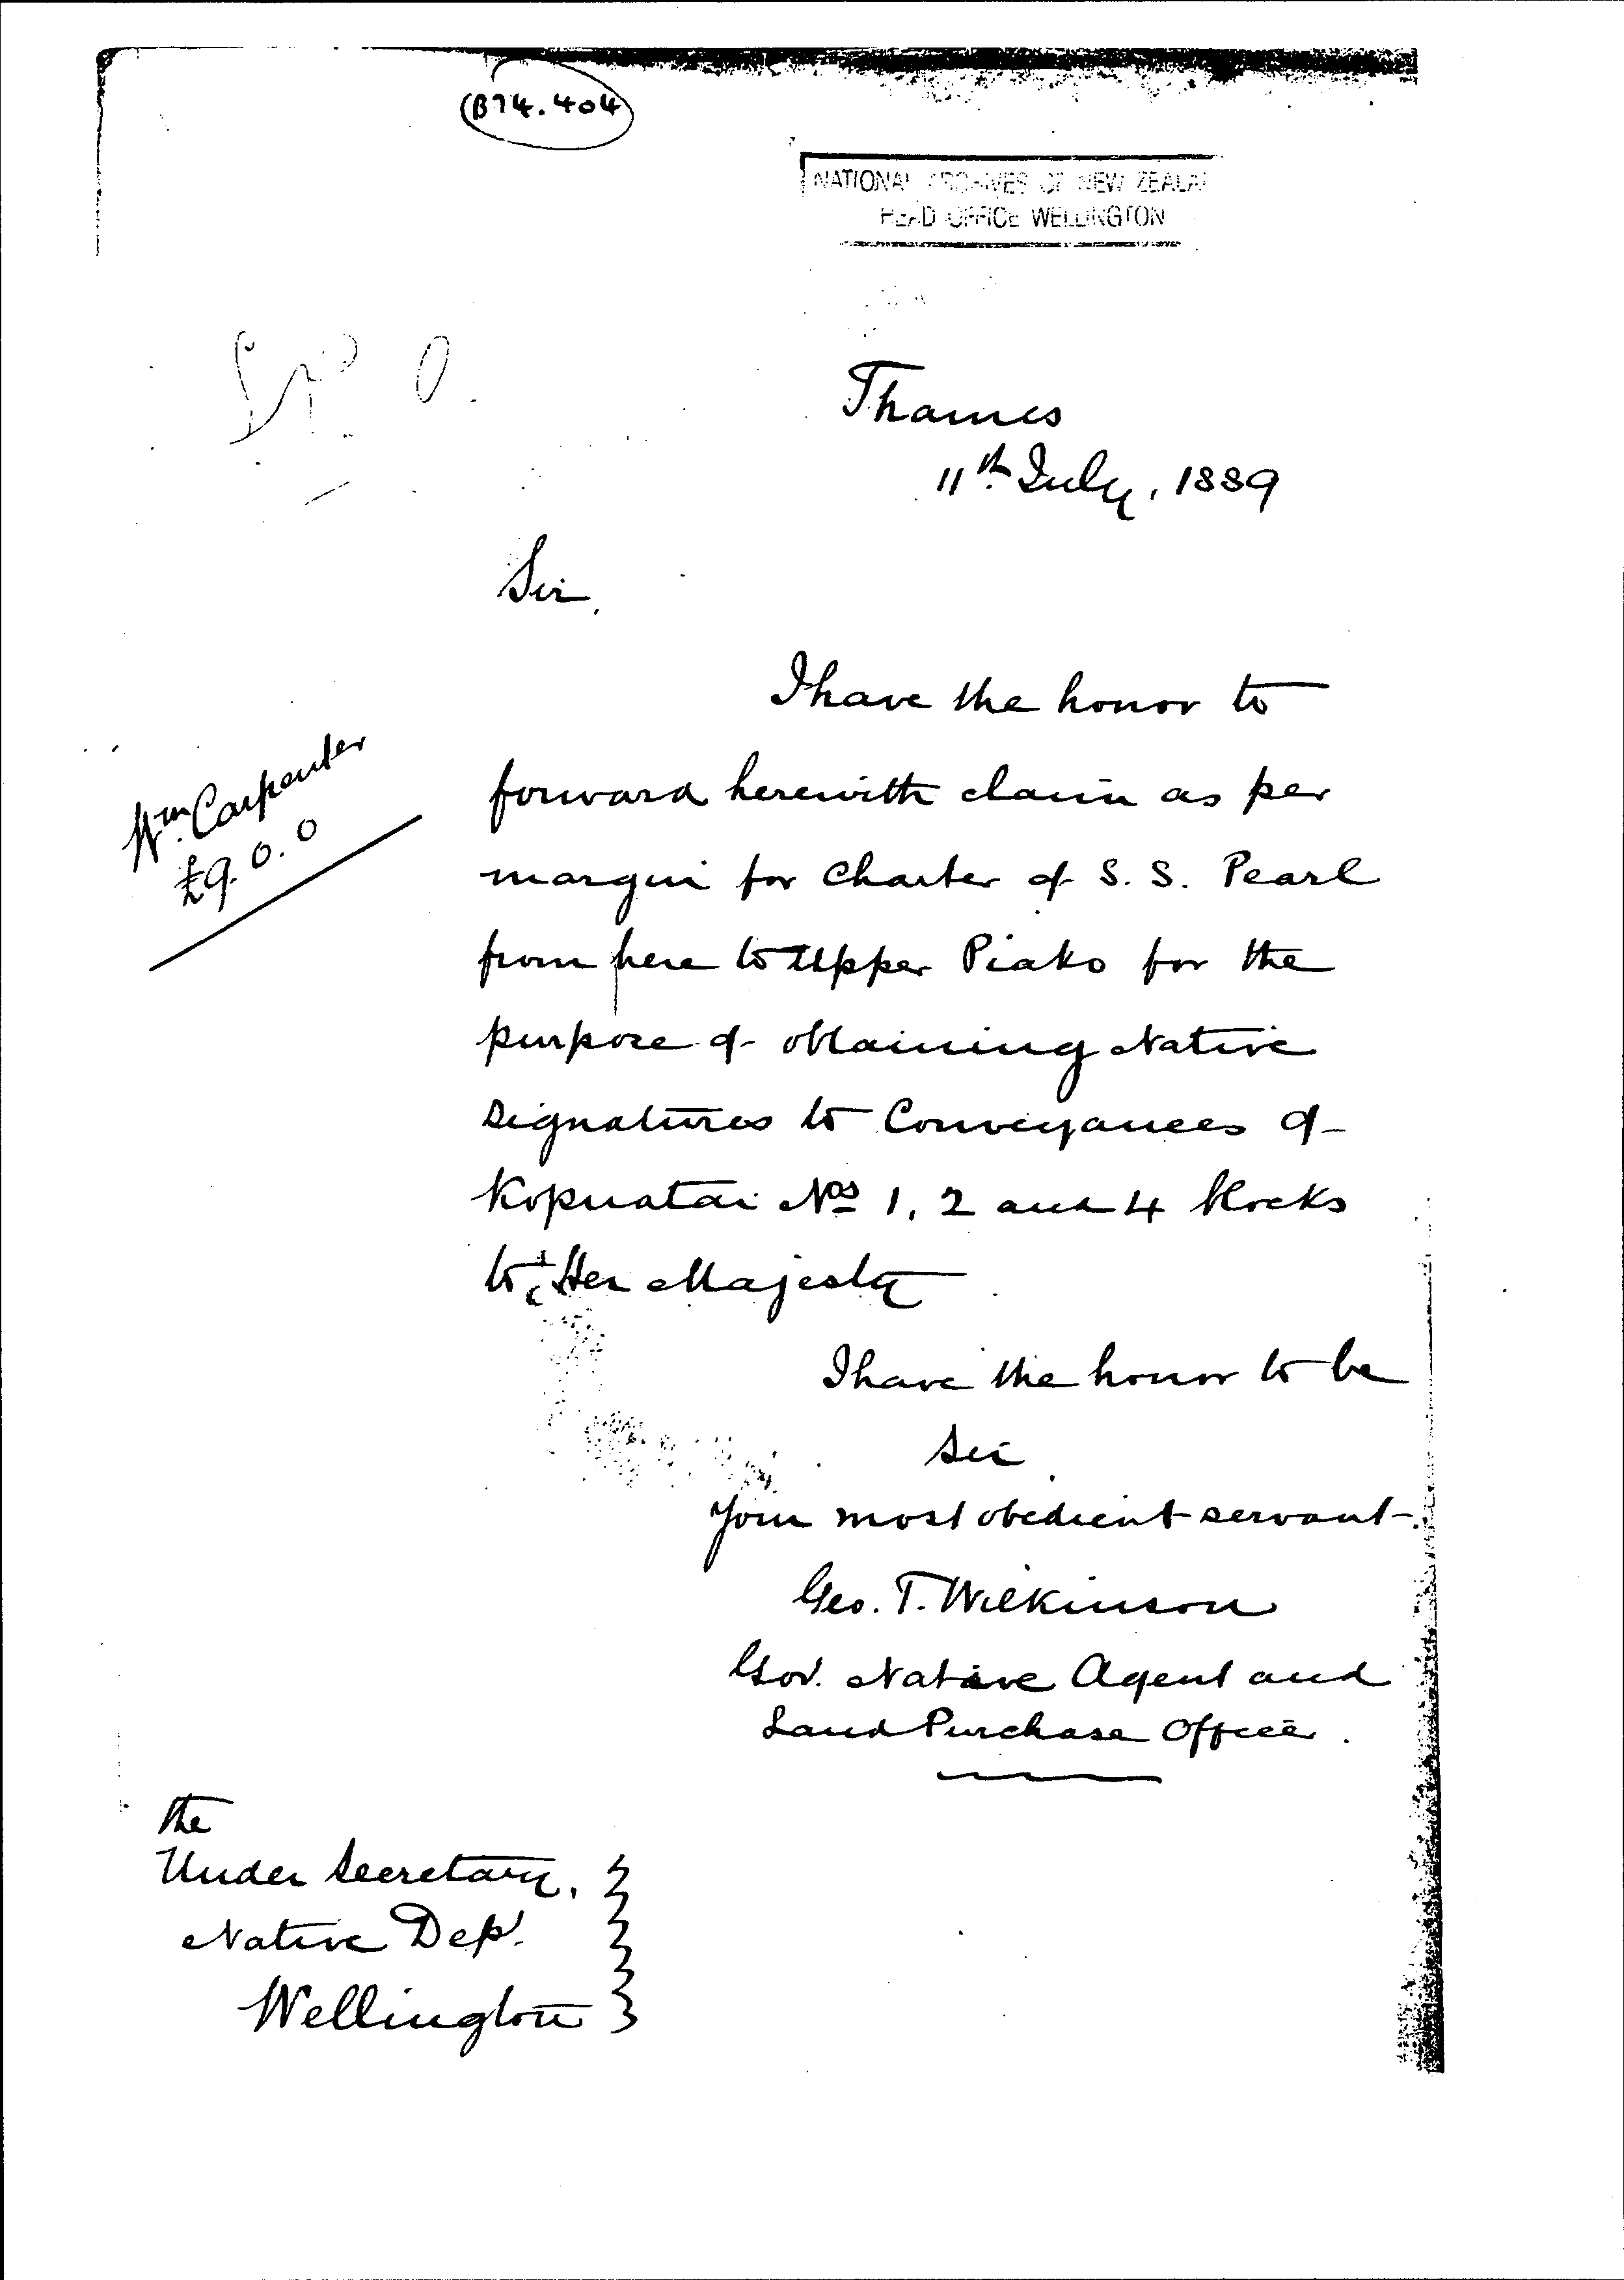 (B74.404
NATIONAL ARCHIVES OF NEW ZEALA
HEAD OFFICE WELLINGTON
Thames
11th July, 1889
Sir,
I have the honor to
forward herewith claim as per
margin for Charter of S. S. Pearl
from here to Upper Piako for the
purpose of obtaining Native
Signatures to Conveyances of
Kopuatai Nos 1, 2 and 4 blocks
to Her Majesty
Wm. Carpenter
£9. 0. 0
I have the honor to be
Sir
Your most obedient servant.
Geo. T. Wilkinson
Gov. Native Agent and
Land Purchase Officer.
The
Under Secretary,
Native Dept.
Wellington